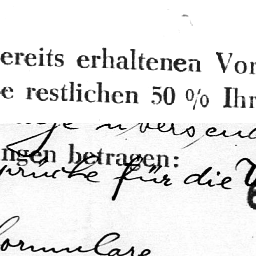 ereits erhaltenen Vor
e restlichen 50 % Ihr
ungen betragen:
prüche für die
Formulare